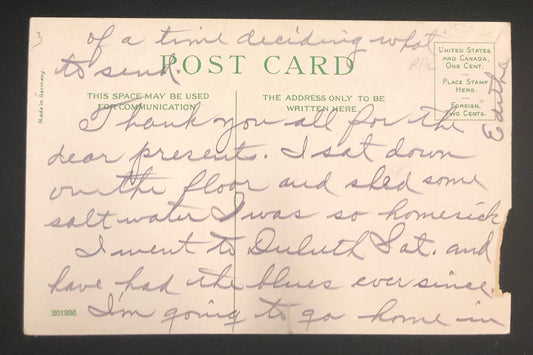 of a time deciding what
to send.
POST CARD
UNITED STATES
AND CANADA,
ONE CENT.
PLACE STAMP
HERE.
FOREIGN,
TWO CENTS.
Made in Germany
3
BPC
THIS SPACE MAY BE USED
FOR COMMUNICATION
THE ADDRESS ONLY TO BE
WRITTEN HERE
Thank you all for the
dear presents. I sat down
on the floor and shed some
salt water I was so homesick
I went to Duluth Sat. and
have had the blues ever since.
I'm going to go home in
201936